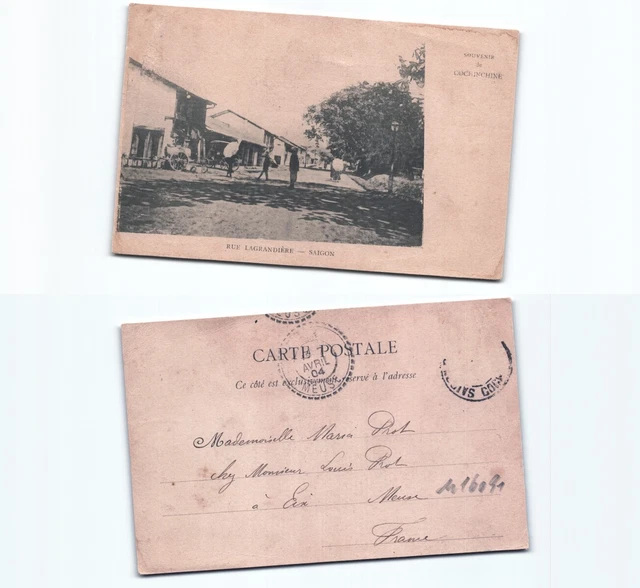 SOUVENIR
de
COCHINCHINE
RUE LAGRANDIÈRE — SAIGON
MEUSE
CARTE POSTALE
AVRIL
04
MEUSE
Ce côté est exclusivement réservé à l'adresse
SAIG COCH
Mademoiselle Maria Prot
chez Monsieur Louis Prot
à Eix Meuse
France